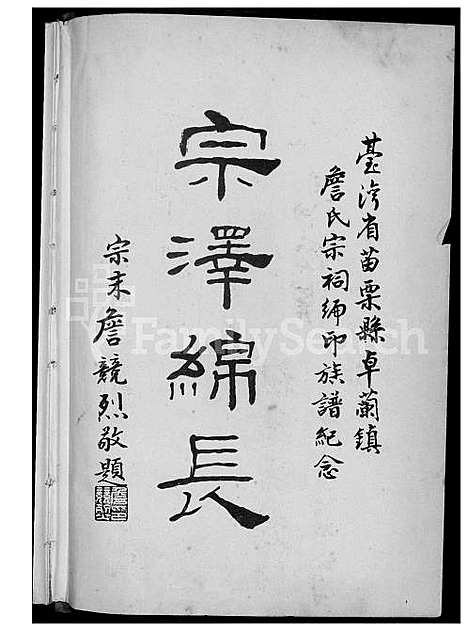 臺灣省苗栗縣卓蘭鎮
詹氏宗祠編印族譜紀念
宗澤綿長
宗末詹競烈敬題
FamilySearch